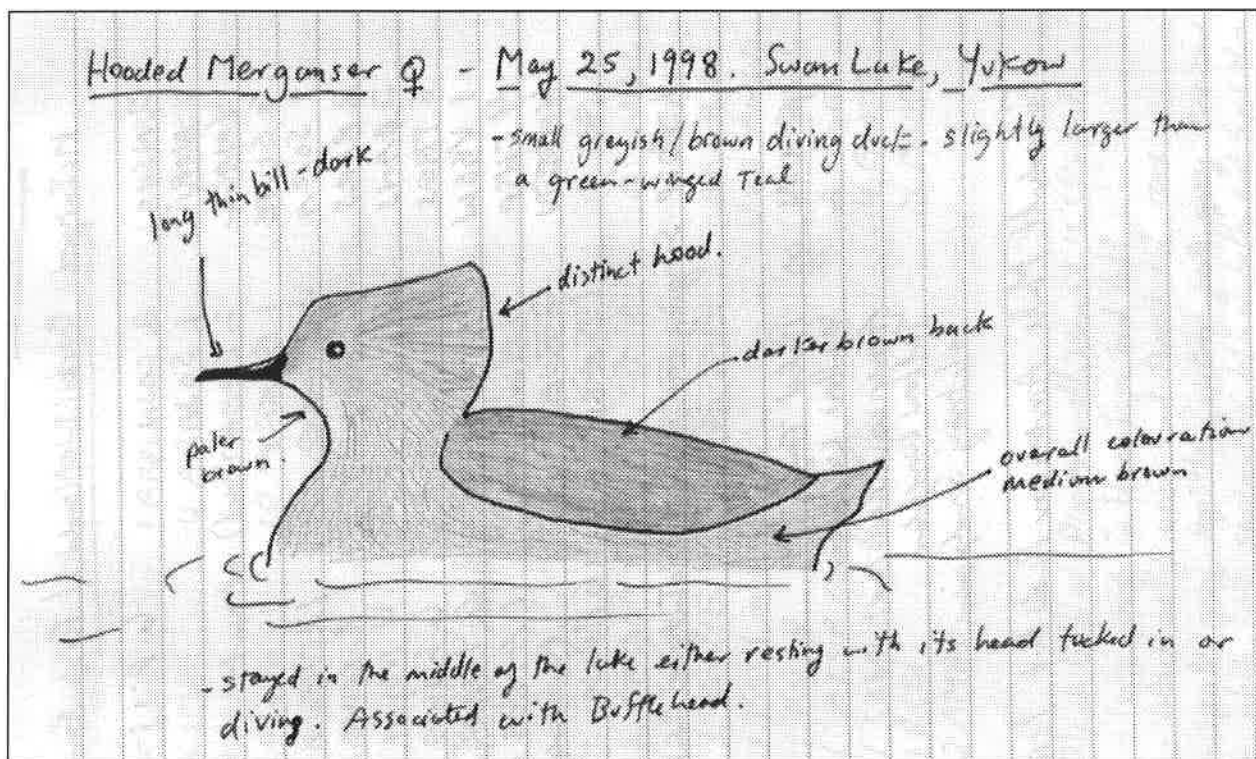 Hooded Merganser ♀ - May 25, 1998. Swan Lake, Yukon
- small greyish/brown diving duck. slightly larger than
a green-winged Teal
long thin bill - dark
distinct hood.
darker brown back
paler
brown.
overall colouration
medium brown
- stayed in the middle of the lake either resting with its head tucked in or
diving. Associated with Bufflehead.